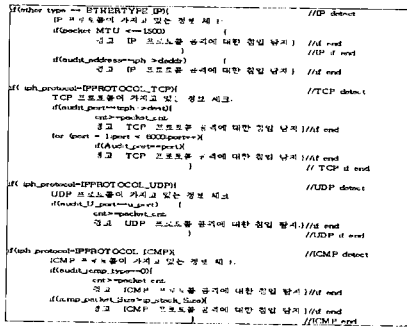 if(ether type == ETHERTYPE_IP){ //IP detect
IP 프로토콜이 가지고 있는 정보 체크
if(packet MTU <=1500) {
경고 IP 프로토콜 공격에 대한 침입 탐지 } //if end
} //IP if end
if(audit_address==iph->daddr) {
경고 IP 프로토콜 공격에 대한 침입 탐지 } //if end
if( iph_protocol=IPPROTOCOL_TCP){ //TCP detect
TCP 프로토콜이 가지고 있는 정보 체크.
if(audit_port==tcph->dest){
cnt>=packet_cnt
경고 TCP 프로토콜 공격에 대한 침입 탐지 }//if end
for (port = 1;port < 6000;port++){
if(Audit_port==port){
경고 TCP 프로토콜 공격에 대한 침입 탐지 }//if end
} // TCP if end
if( iph_protocol=IPPROTOCOL_UDP){ //UDP detect
UDP 프로토콜이 가지고 있는 정보 체크
if(audit_U_port==u_port) {
cnt>=packet_cnt
경고 UDP 프로토콜 공격에 대한 침입 탐지 }//if end
} //UDP if end
if(iph_protocol=IPPROTOCOL_ICMP){ //ICMP detect
ICMP 프로토콜이 가지고 있는 정보 체크
if(audit_icmp_type==0){
cnt >=packet cnt
경고 ICMP 프로토콜 공격에 대한 침입 탐지 }//if end
if(icmp_packet_Size>ip_stack_Size){
경고 ICMP 프로토콜 공격에 대한 침입 탐지 }//if end
} //ICMP end